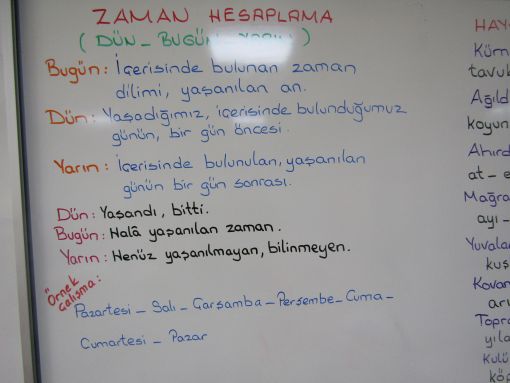 ZAMAN HESAPLAMA
( DÜN - BUGÜN - YARIN )
Bugün: İçerisinde bulunan zaman
dilimi, yaşanılan an.
Dün: Yaşadığımız, içerisinde bulunduğumuz
günün, bir gün öncesi.
Yarın: İçerisinde bulunulan, yaşanılan
günün bir gün sonrası.
Dün: Yaşandı, bitti.
Bugün: Halâ yaşanılan zaman.
Yarın: Henüz yaşanılmayan, bilinmeyen.
Örnek
Çalışma:
Pazartesi - Salı - Çarşamba - Perşembe - Cuma -
Cumartesi - Pazar
HAY
Küm
tavuk
Ağıld
koyun
Ahırd
at - e
Mağra
ayı -
Yuvala
kuş
Kovan
arı
Topra
yıla
Kulü
köp